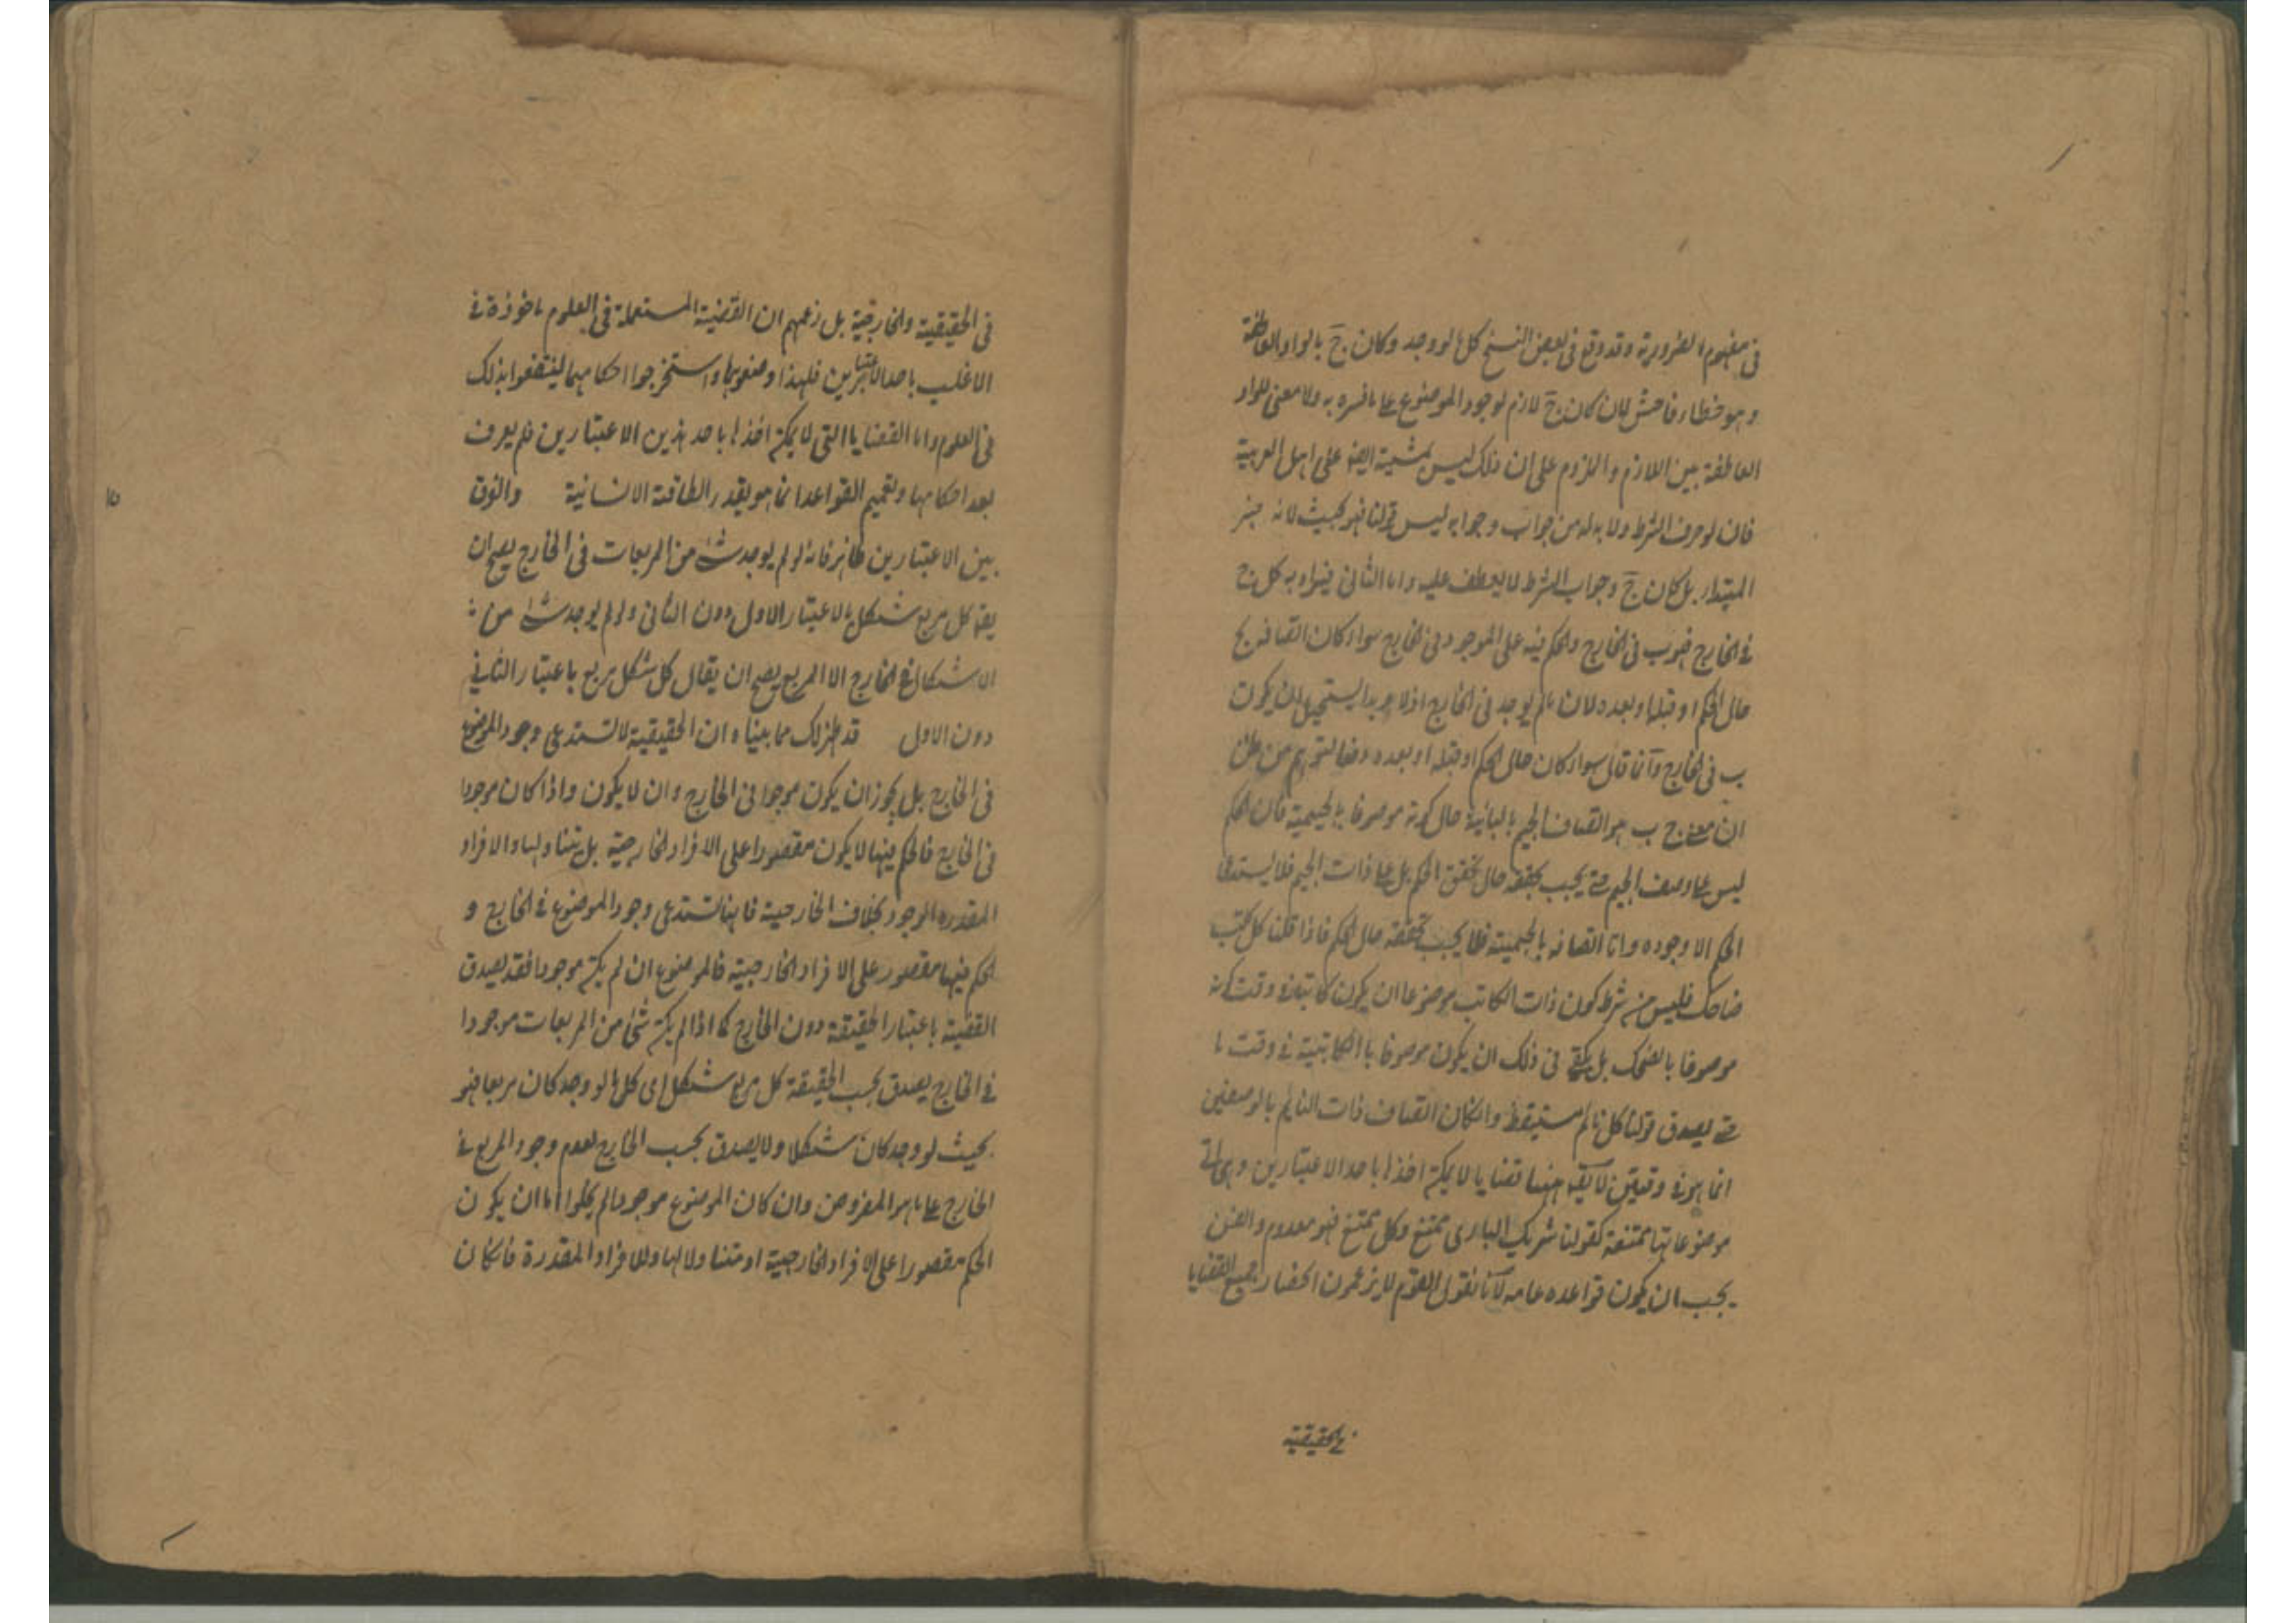 في مفهوم الضرورية وقد وقع في بعض النسخ كل ما لو وجد وكان ج بالواو العاطفة
وهو خطاء فاحش لان كان ج لازم لوجود الموضوع على ما فسره به ولا معنى للواو
العاطفة بين اللازم والملزوم على ان ذلك ليس بمشتبه ايضا على اهل العربية
فان لو حرف الشرط ولا بد له من جواب وجوابه ليس قولنا فهو بحيث لانه خبر
المبتداء بل كان ج وجواب الشرط لا يعطف عليه واما الثاني فيراد به كل ج
في الخارج فهو ب في الخارج والحكم فيه على الموجود في الخارج سواء كان اتصافه بج
حال الحكم او قبله او بعده لان ما لم يوجد في الخارج ازلا وابدا يستحيل ان يكون
ب في الخارج وانما قال سواء كان حال الحكم او قبله او بعده دفعا لتوهم من ظن
ان معنى ج ب هو اتصاف الجيم بالبائية حال كونه موصوفا بالجيمية فان الحكم
ليس على وصف الجيم حتى يجب تحققه حال تحقق الحكم بل على ذات الجيم فلا يستدعي
الحكم الا وجوده واما اتصافه بالجيمية فلا يجب تحققه حال الحكم فاذا قلنا كل كاتب
ضاحك فليس من شرط كون ذات الكاتب موضوعا ان يكون كاتبا في وقت كونه
موصوفا بالضحك بل يكفي في ذلك ان يكون موصوفا بالكاتبية في وقت ما
حتى يصدق قولنا كل نائم مستيقظ وان كان اتصاف ذات النائم بالوصفين
انما هو في وقتين لا يقال ههنا قضايا لا يمكن اخذها باحد الاعتبارين وهي التي
موضوعاتها ممتنعة كقولنا شريك الباري ممتنع وكل ممتنع فهو معدوم والفن
يجب ان يكون قواعده عامه لانا نقول القوم لا يزعمون انحصار جميع القضايا
في الحقيقية
في الحقيقية والخارجية بل زعمهم ان القضية المستعملة في العلوم ماخوذة في
الاغلب باحد الاعتبارين فلهذا وضعوهما واستخرجوا احكامهما لينتفعوا بذلك
في العلوم واما القضايا التي لا يمكن اخذها باحد هذين الاعتبارين فلم يعرف
بعد احكامها وتعميم القواعد انما هو بقدر الطاقة الانسانية والفرق
بين الاعتبارين ظاهر فانه لو لم يوجد شئ من المربعات في الخارج يصح ان
يقال كل مربع شكل بالاعتبار الاول دون الثاني ولو لم يوجد شئ من
الاشكال في الخارج الا المربع يصح ان يقال كل شكل مربع باعتبار الثاني
دون الاول قد ظهر لك مما بيناه ان الحقيقية لا تستدعي وجود الموضوع
في الخارج بل يجوز ان يكون موجودا في الخارج وان لا يكون واذا كان موجودا
في الخارج فالحكم فيها لا يكون مقصورا على الافراد الخارجية بل يتناولها والافراد
المقدرة الوجود بخلاف الخارجية فانها تستدعي وجود الموضوع في الخارج و
الحكم فيها مقصور على الافراد الخارجية فالموضوع ان لم يكن موجودا فقد يصدق
القضية باعتبار الحقيقة دون الخارج كما اذا لم يكن شئ من المربعات موجودا
في الخارج يصدق بحسب الحقيقة كل مربع شكل اي كل ما لو وجد كان مربعا فهو
بحيث لو وجد كان شكلا ولا يصدق بحسب الخارج لعدم وجود المربع في
الخارج على ما هو المفروض وان كان الموضوع موجودا لم يخلوا اما ان يكون
الحكم مقصورا على الافراد الخارجية او متناولا لها وللافراد المقدرة فان كان